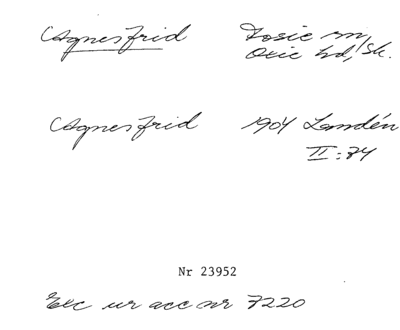 Agnesfrid Fosie sn,
Oxie hd, Sk.
Agnesfrid 1904 Landén
II:84
Nr 23952
Exc ur acc nr 7220